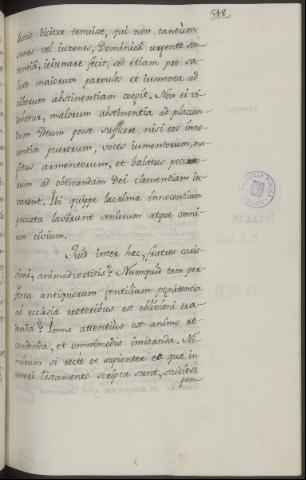 548
hostis dicitur temuisse, qui non tantum
senes vel iuvenes, Dominica urgente sen-
tentia, ieiunare fecit, sed etiam pro sa-
lute maiorum parvulos et iumenta ad
ciborum abstinentiam coegit. Non ei vi-
debatur, maiorum abstinentia ad placan-
dum Deum posse sufficere, nisi eos inno-
centia puerorum, voces iumentorum, mu-
gitus armentorum, et balatus pecu-
rum ad obtinendam Dei clementiam iu-
varent. Ibi quippe lacrimae innocentium
peccata laverunt seniorum atque omni-
um civium.
Quid inter haec, fratres caris-
simi, animadvertitis? Numquid tam per-
fecta antiquorum gentilium poenitentia
ab ecclesiae rectoribus est oblivioni tra-
denda? Immo attentius est animo re-
condenda, et omnimodis imitanda. Ni-
mirum si recte et sapienter ea quae in
veteri testamento scripta sunt, studiose
pen-